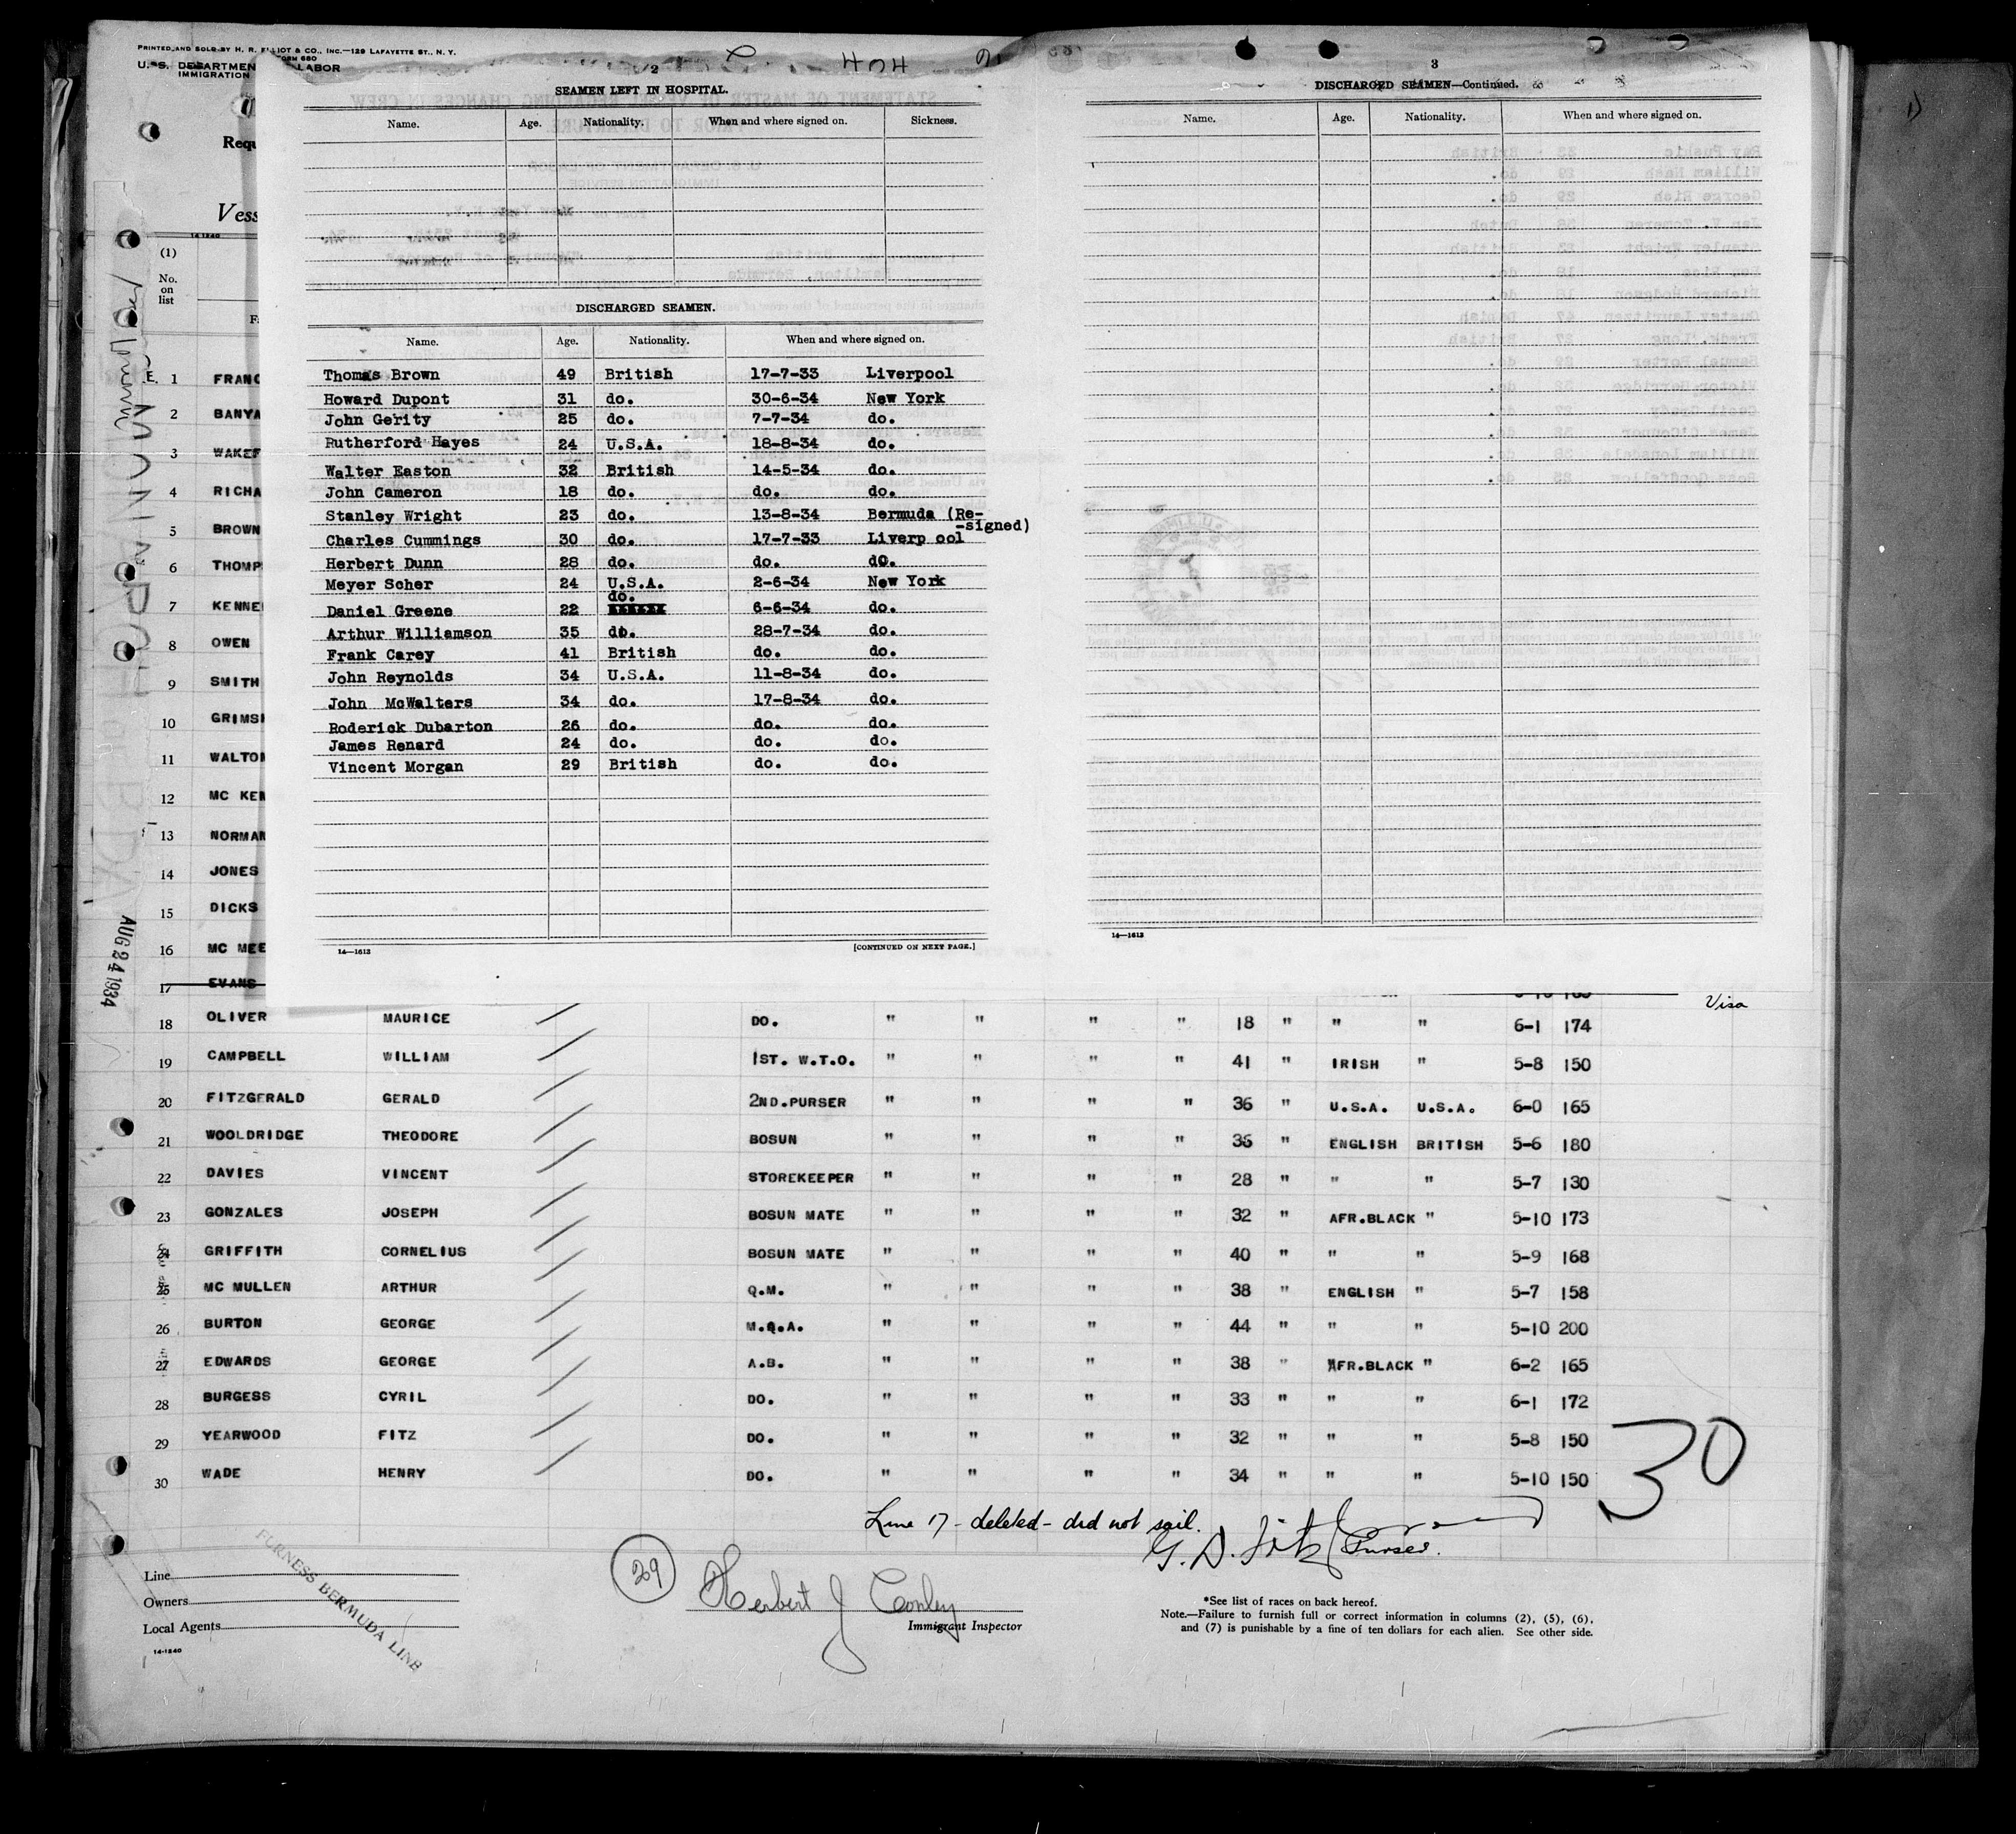 PRINTED AND SOLD BY H. R. ELLIOT & CO., INC.—129 LAFAYETTE ST., N. Y.
FORM 680
U. S. DEPARTMENT LABOR
IMMIGRATION
404
2
SEAMEN LEFT IN HOSPITAL.
Name. Age. Nationality. When and where signed on. Sickness.
DISCHARGED SEAMEN.
Name. Age. Nationality. When and where signed on.
Thomas Brown 49 British 17-7-33 Liverpool
Howard Dupont 31 do. 30-6-34 New York
John Gerity 25 do. 7-7-34 do.
Rutherford Hayes 24 U.S.A. 18-8-34 do.
Walter Easton 32 British 14-5-34 do.
John Cameron 18 do. do. do.
Stanley Wright 23 do. 13-8-34 Bermuda (Re-
-signed)
Charles Cummings 30 do. 17-7-33 Liverp ool
Herbert Dunn 28 do. do. do.
Meyer Scher 24 U.S.A. 2-6-34 New York
Daniel Greene 22 do. 6-6-34 do.
Arthur Williamson 35 do. 28-7-34 do.
Frank Carey 41 British do. do.
John Reynolds 34 U.S.A. 11-8-34 do.
John McWalters 34 do. 17-8-34 do.
Roderick Dubarton 26 do. do. do.
James Renard 24 do. do. do.
Vincent Morgan 29 British do. do.
14—1613 [CONTINUED ON NEXT PAGE.]
3
DISCHARGED SEAMEN—Continued.
Name. Age. Nationality. When and where signed on.
14—1613
Requ
Vess
14-1240
(1)
No.
on
list
E. 1 FRANC
2 BANYA
3 WAKEF
4 RICHA
5 BROWN
6 THOMP
7 KENNE
8 OWEN
9 SMITH
10 GRIMS
11 WALTON
12 MC KEN
13 NORMAN
14 JONES
15 DICKS
16 MC MEE
17 EVANS
Visa
AUG 24 1934
18 OLIVER MAURICE DO. " " " " 18 " " " 6-1 174
19 CAMPBELL WILLIAM 1ST. W.T.O. " " " " 41 " IRISH " 5-8 150
20 FITZGERALD GERALD 2ND.PURSER " " " " 36 " U.S.A. U.S.A. 6-0 165
21 WOOLDRIDGE THEODORE BOSUN " " " " 36 " ENGLISH BRITISH 5-6 180
22 DAVIES VINCENT STOREKEEPER " " " " 28 " " " 5-7 130
23 GONZALES JOSEPH BOSUN MATE " " " " 32 " AFR.BLACK " 5-10 173
24 GRIFFITH CORNELIUS BOSUN MATE " " " " 40 " " " 5-9 168
25 MC MULLEN ARTHUR Q.M. " " " " 38 " ENGLISH " 5-7 158
26 BURTON GEORGE M.Q.A. " " " " 44 " " " 5-10 200
27 EDWARDS GEORGE A.B. " " " " 38 " AFR.BLACK " 6-2 165
28 BURGESS CYRIL DO. " " " " 33 " " " 6-1 172
29 YEARWOOD FITZ DO. " " " " 32 " " " 5-8 150
30 WADE HENRY DO. " " " " 34 " " " 5-10 150
30
Line 17 - deleted - did not sail.
G. D. Fitz
Purser.
29
Herbert J Conley
Immigrant Inspector
Line
Owners
Local Agents
14-1240
FURNESS BERMUDA LINE
*See list of races on back hereof.
Note.—Failure to furnish full or correct information in columns (2), (5), (6),
and (7) is punishable by a fine of ten dollars for each alien. See other side.